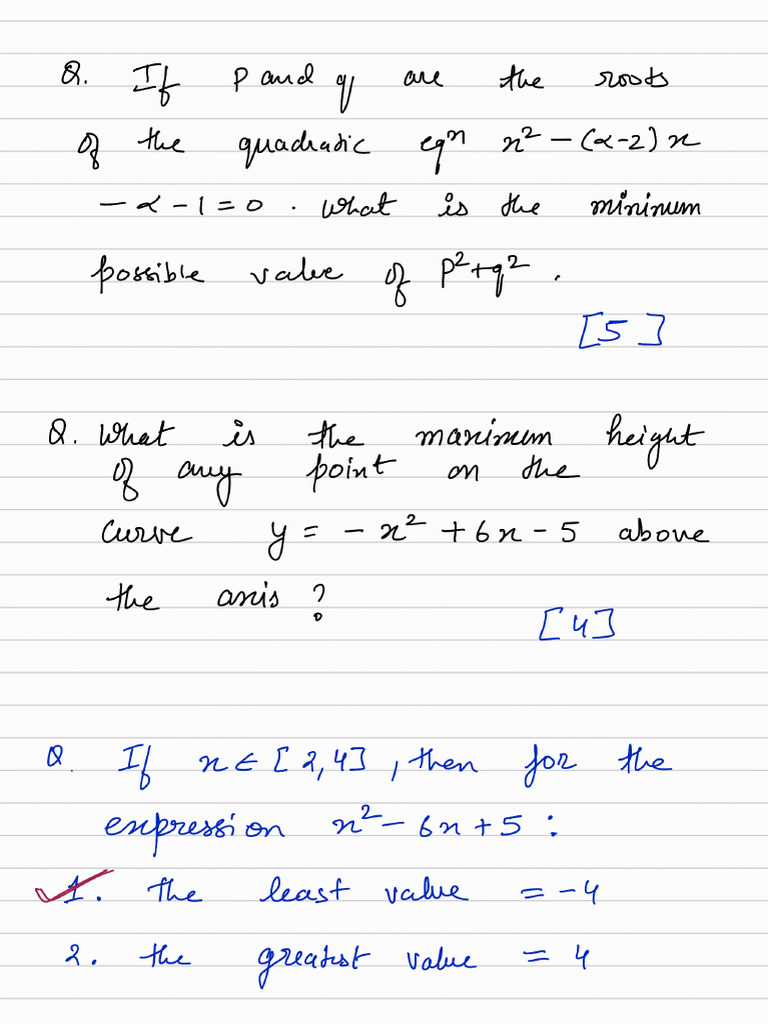 Q. If p and q are the roots
of the quadratic eqⁿ x² - (α-2) x
- α - 1 = 0 . What is the mininum
possible value of p² + q² .
[5]
Q. What is the maximum height
of any point on the
curve y = - x² + 6x - 5 above
the axis ?
[4]
Q. If x ∈ [2,4] , then for the
expression x² - 6x + 5 :
1. the least value = -4
2. the greatest value = 4